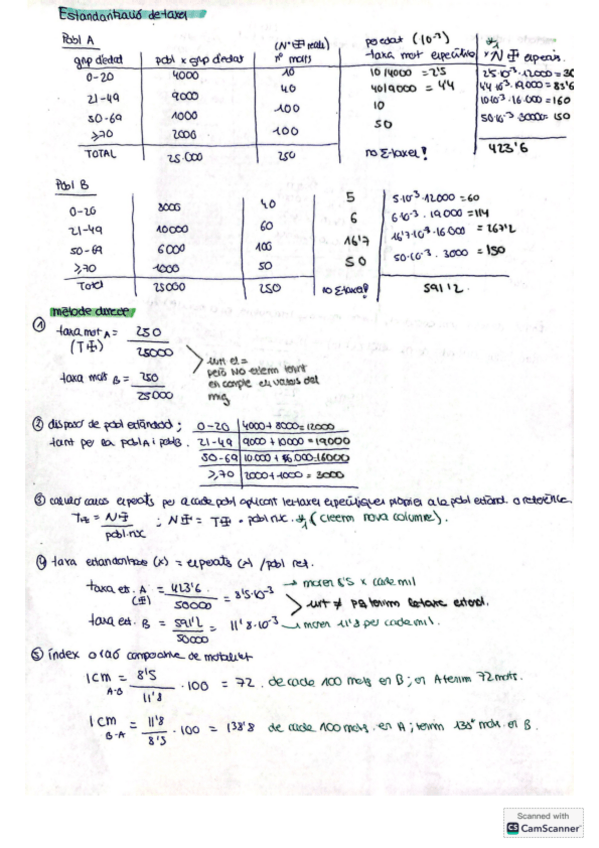 Estandarització de taxes
Pobl A
grup d'edat pobl x grup d'edat (Nº ✠ reals) nº morts per edat (10⁻³) taxa mort específica *₁ N ✠ esperats.
0-20 4000 10 10/4000 = 2'5 2'5·10⁻³·12000 = 30
21-49 9000 40 40/9000 = 4'4 4'4·10⁻³·19000 = 83'6
50-69 1000 100 10 10·10⁻³·16.000 = 160
≥70 2000 100 50 50·10⁻³·3000 = 150
TOTAL 25.000 250 no Σ taxes! 423'6
Pobl B
0-20 8000 40 5 5·10⁻³·12000 = 60
21-49 10000 60 6 6·10⁻³·19000 = 114
50-69 6000 100 16'7 16'7·10⁻³·16000 = 267'2
≥70 1000 50 50 50·10⁻³·3000 = 150
Total 25000 250 no Σ taxes! 591'2
mètode directe
① taxa mort A = 250 / 25000
(T✠)
taxa morts B = 250 / 25000
surt el =
però NO estem tenint
en compte els valors del
mig
② disposar de pobl estàndard ; 0-20 4000 + 8000 = 12000
tant per la pobl A i pobl B. 21-49 9000 + 10000 = 19000
50-69 10.000 + 6.000 = 16000
≥70 2000 + 1000 = 3000
③ càlcul casos esperats per a cada pobl aplicant les taxes específiques pròpies a la pobl estànd. o referència
T✠ = N✠ / pobl. risc ; N✠ = T✠ · pobl risc. *₁ (creem nova columna).
④ taxa estandaritzada (x) = esperats (x) / pobl ref.
taxa est. A (✠) = 423'6 / 50000 = 8'5·10⁻³ → moren 8'5 x cada mil
surt ≠ pq tenim la taxa estand.
taxa est. B = 591'2 / 50000 = 11'8·10⁻³ → moren 11'8 per cada mil.
⑤ índex o raó comparativa de mortalitat
ICM A-B = 8'5 / 11'8 · 100 = 72. de cada 100 morts en B ; en A tenim 72 morts.
ICM B-A = 11'8 / 8'5 · 100 = 138'8 de cada 100 morts en A ; tenim 138' morts en B.
Scanned with
CS CamScanner